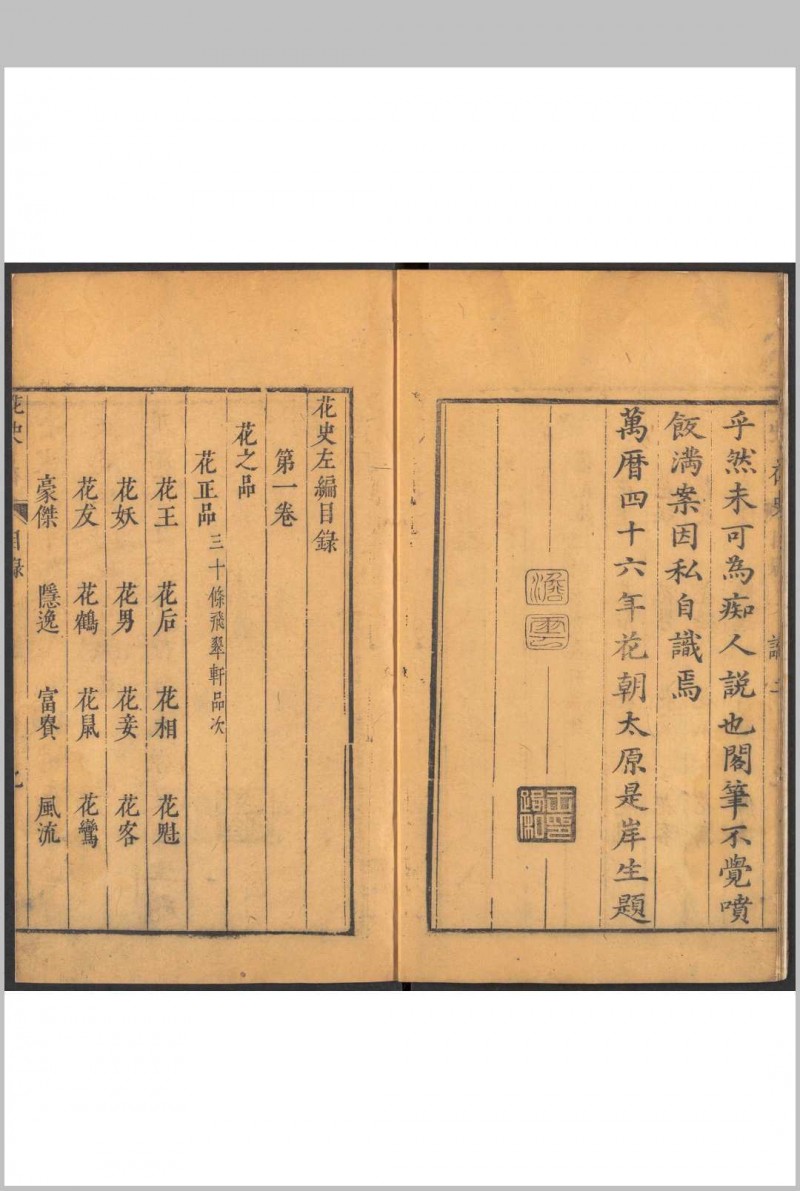 乎然未可為痴人説也閣筆不覺噴
飯滿案因私自識焉
萬曆四十六年花朝太原是岸生題
花史左編目錄
第一卷
花之品
花正品三十條飛翠軒品次
花王 花后 花相 花魁
花妖 花男 花妾 花客
花友 花鶴 花鼠 花鸞
豪傑 隱逸 富貴 風流
花史 目錄